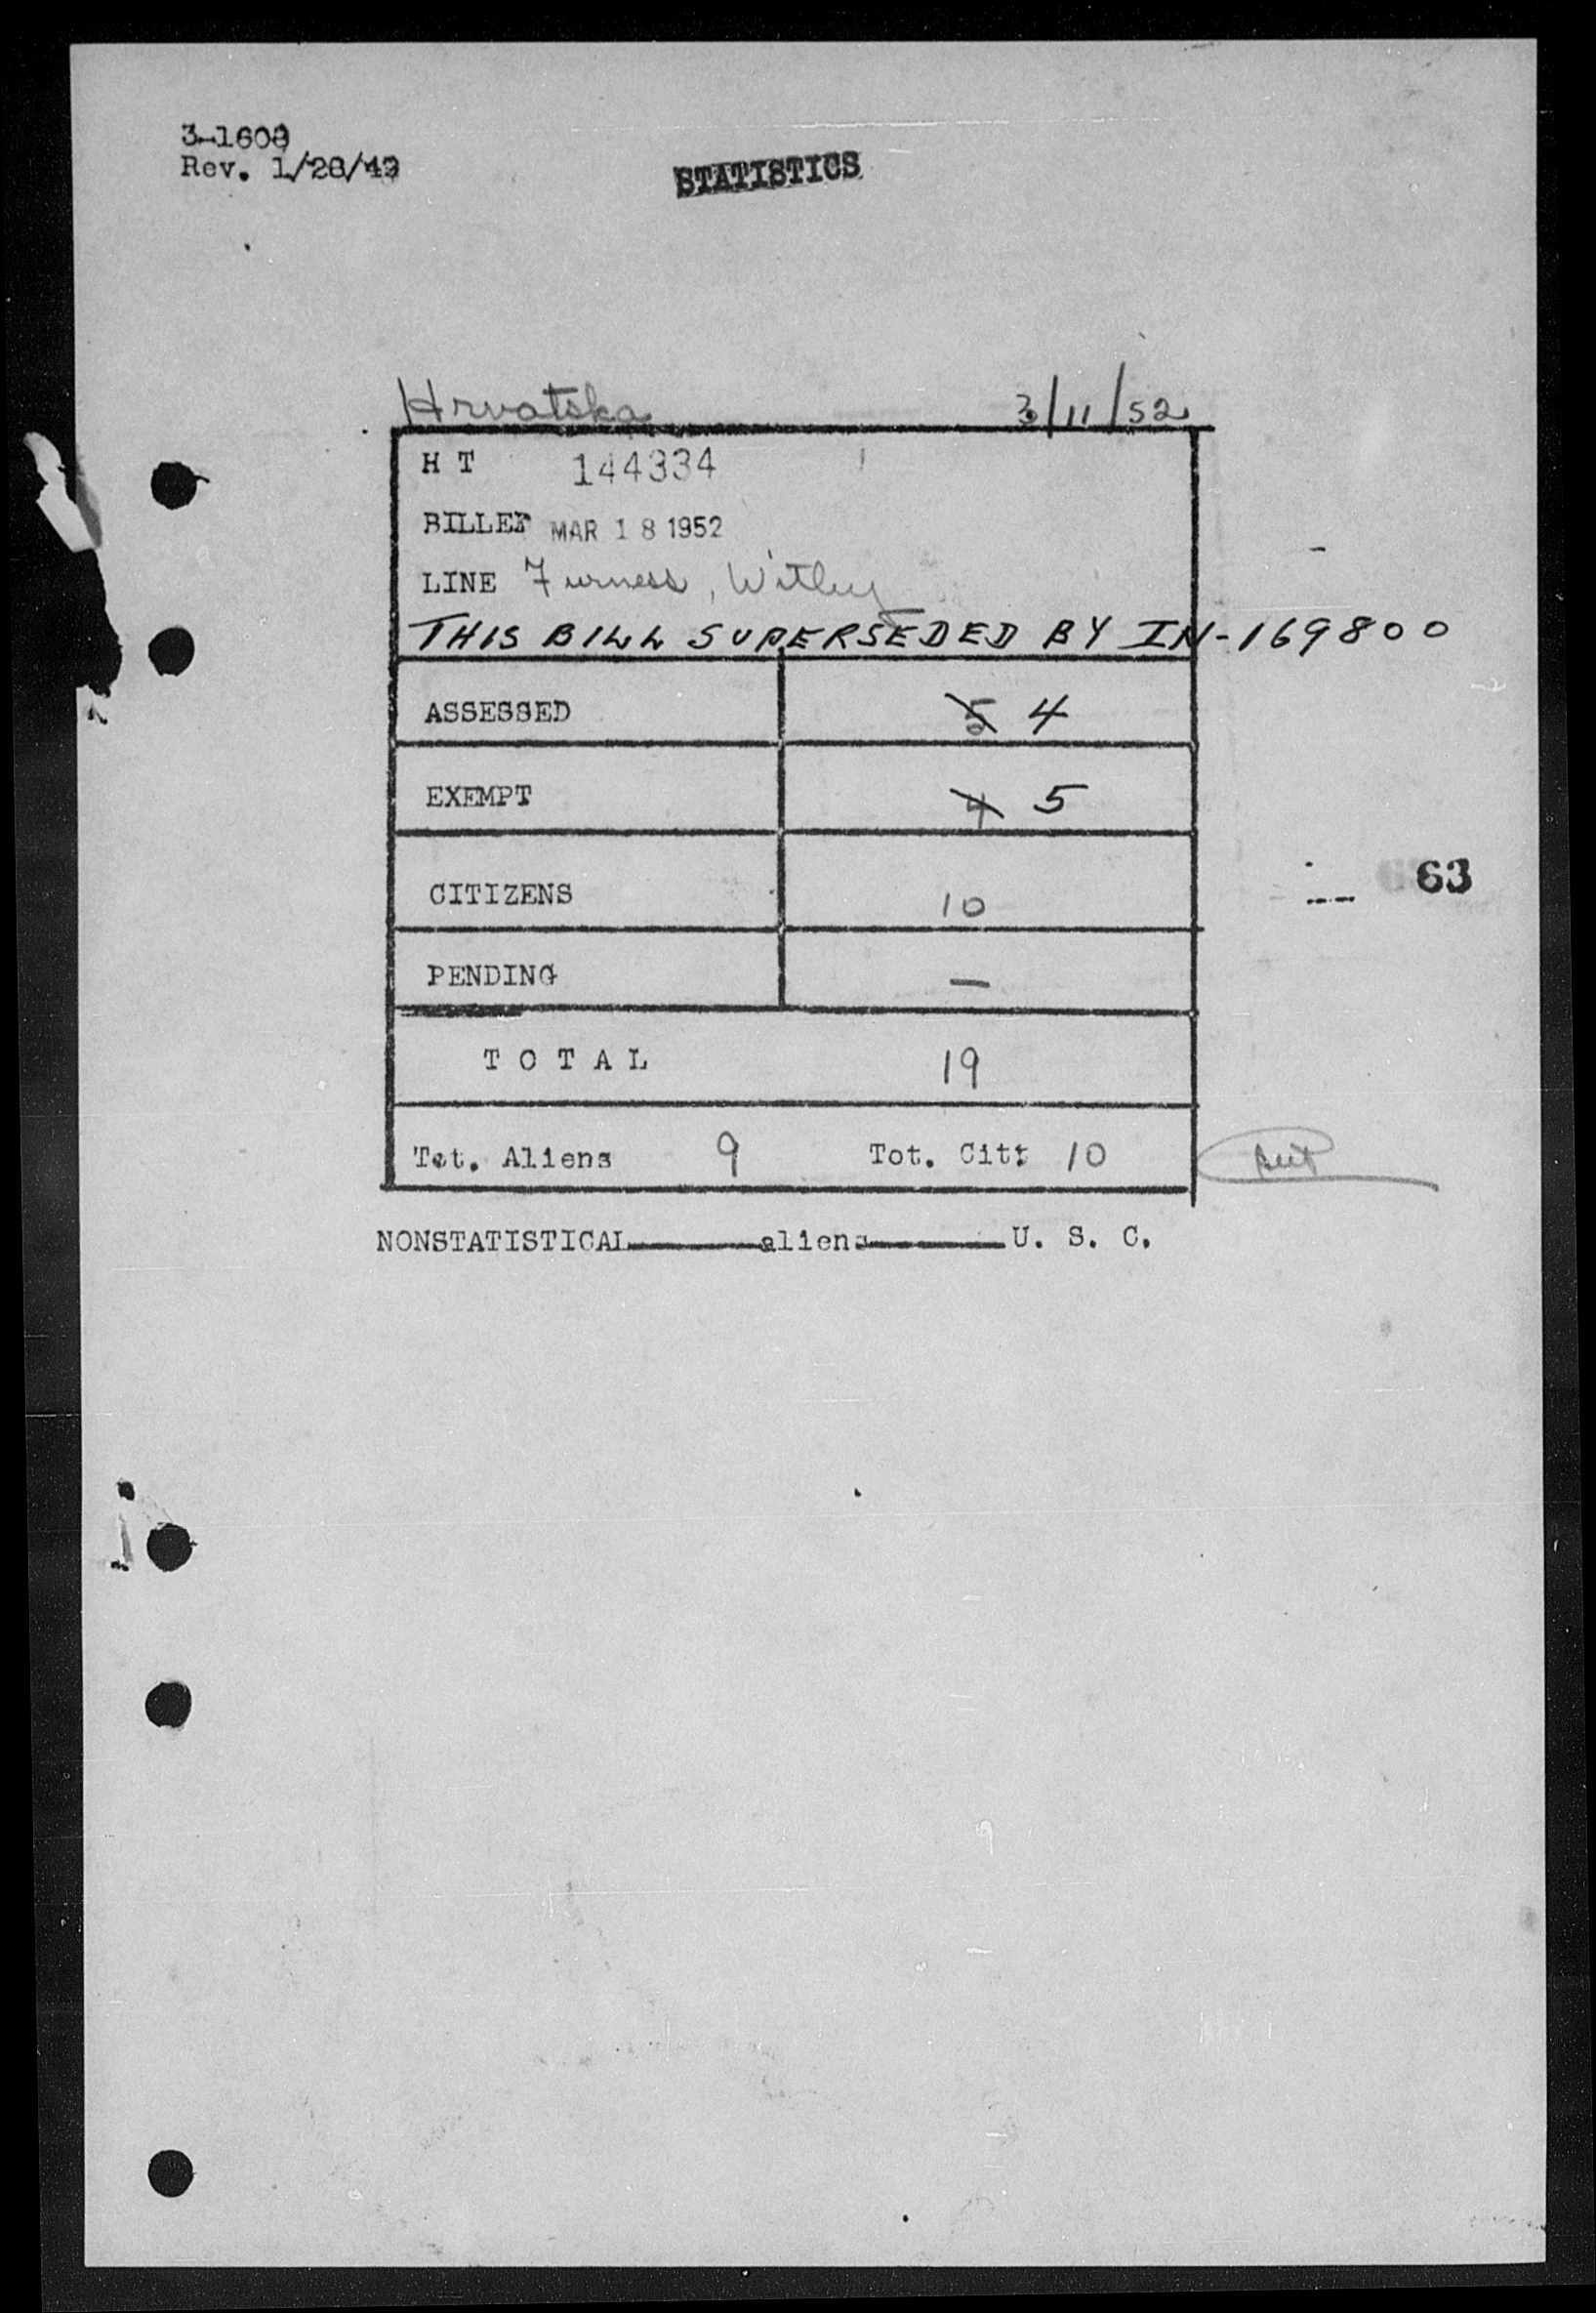 3-1608
Rev. 1/28/49
STATISTICS
Hrvatska 3/11/52
H T 144334
BILLED MAR 18 1952
LINE Furness, Withy
THIS BILL SUPERSEDED BY IN-169800
ASSESSED 5 4
EXEMPT 4 5
CITIZENS 10
63
PENDING —
TOTAL 19
Tot. Aliens 9 Tot. Cit: 10
NONSTATISTICAL aliens U. S. C.